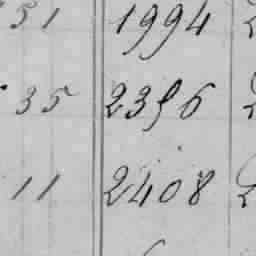 51 1994
35 2356
11 2408